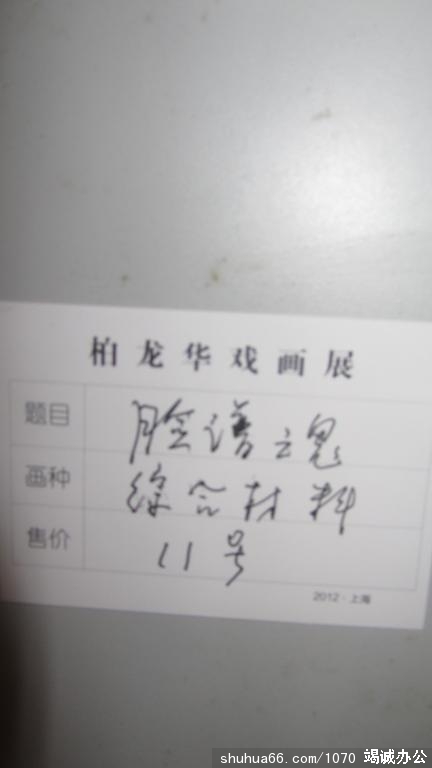 柏龙华戏画展
题目 脸谱之鬼
画种 综合材料
售价 11号
2012·上海
shuhua66.com/1070 竭诚办公